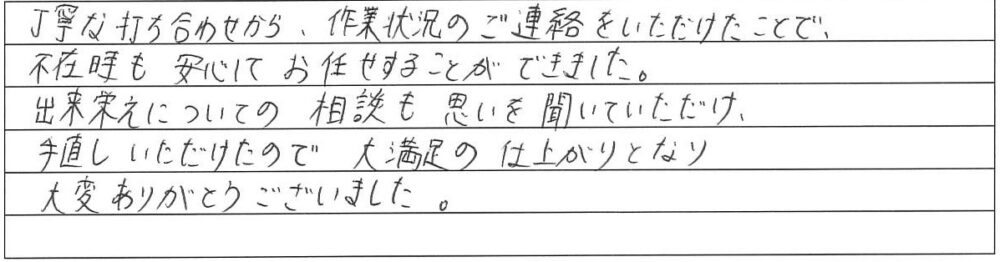 丁寧な打ち合わせから、作業状況のご連絡をいただけたことで、
不在時も安心してお任せすることができました。
出来栄えについての相談も思いを聞いていただけ、
手直しいただけたので大満足の仕上がりとなり
大変ありがとうございました。